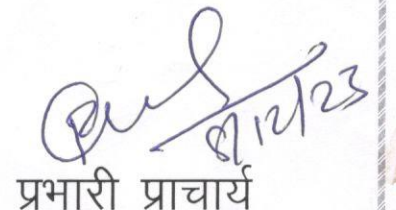 8/12/23
प्रभारी प्राचार्य